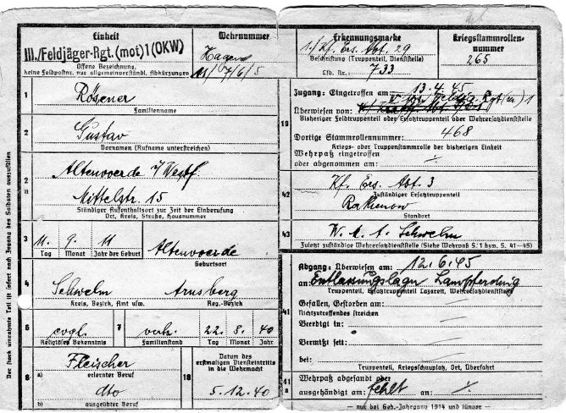 Einheit
III./Feldjäger-Rgt.(mot)1(OKW)
Offene Bezeichnung,
keine Feldpostnr. nur allgemeinverständl. Abkürzungen
Wehrnummer
Hagen
11/7/6/5
1
Rösener
Familienname
2
Gustav
Vornamen (Rufname unterstreichen)
2
Altenvoerde i/Westf.
Mittelstr. 15
Ständiger Aufenthaltsort zur Zeit der Einberufung
Ort, Kreis, Straße, Hausnummer
3
11. 9. 11
Tag Monat Jahr der Geburt
Altenvoerde
Geburtsort
4
Schwelm Arnsberg
Kreis, Bezirk, Amt usw. Reg.-Bezirk
6
evgl.
Religiöses Bekenntnis
7
verh. 22. 8. 40
Familienstand Tag Monat Jahr
8
Fleischer
a) erlernter Beruf
dto
b) ausgeübter Beruf
18
Datum des
erstmaligen Diensteintritts
in die Wehrmacht
5.12.40
Erkennungsmarke
1./Kf. Ers. Abt. 29
Beschriftung (Truppenteil, Dienststelle)
Lfd. Nr. 733
Kriegsstammrollen-
nummer
265
19
Zugang: Eingetroffen am: 13.4.45
Überwiesen von:
Bisheriger Feldtruppenteil oder Ersatztruppenteil oder Wehrersatzdienststelle
Dortige Stammrollennummer: 468
Kriegs- oder Truppenstammrolle der bisherigen Einheit
Wehrpaß eingetroffen
oder abgenommen am:
42
Kf. Ers. Abt. 3
Zuständiger Ersatztruppenteil
Rathenow
Standort
43
W. M. A. Schwelm
Zuletzt zuständige Wehrersatzdienststelle (Siehe Wehrpaß S. 1 bzw. S. 41—45)
Abgang: Überwiesen am: 12.6.45
an Entlassungslager Lampferding
Truppenteil, Ersatztruppenteil Lazarett, Wehrersatzdienststelle
Gefallen, Gestorben am:
Nichtzutreffendes streichen
Beerdigt in:
Vermißt seit:
bei:
Truppenteil, Kriegsschauplatz, Ort, Überfahrt
41
Wehrpaß abgesandt oder
ausgehändigt am: fehlt
— nur bei Geb.-Jahrgang 1914 und jünger —